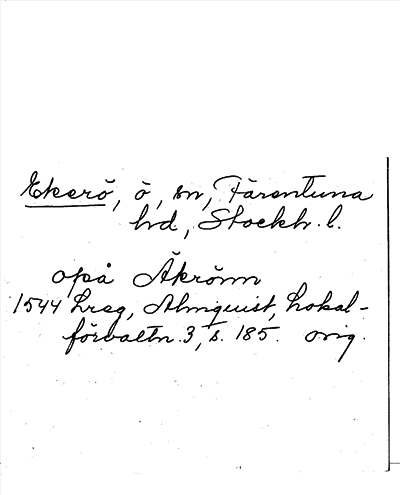 Ekerö, ö, sn, Färentuna
hd, Stockh. l.
opå Äkrönn
1544 hreg, Almquist, Lokal-
förvaltn. 3, s. 185. orig.